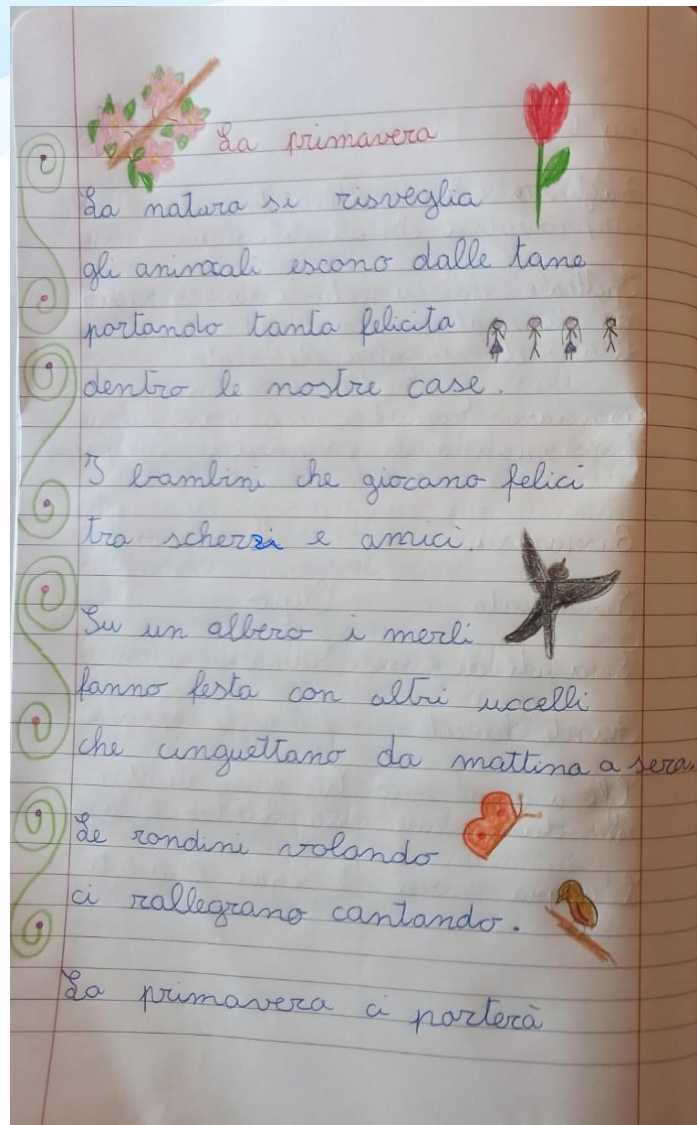 La primavera
La natura si risveglia
gli animali escono dalle tane
portando tanta felicita
dentro le nostre case.
I bambini che giocano felici
tra scherzi e amici.
Su un albero i merli
fanno festa con altri uccelli
che cinguettano da mattina a sera.
Le rondini volando
ci rallegrano cantando.
La primavera ci porterà